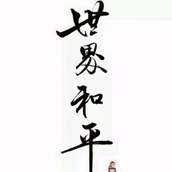 世界和平